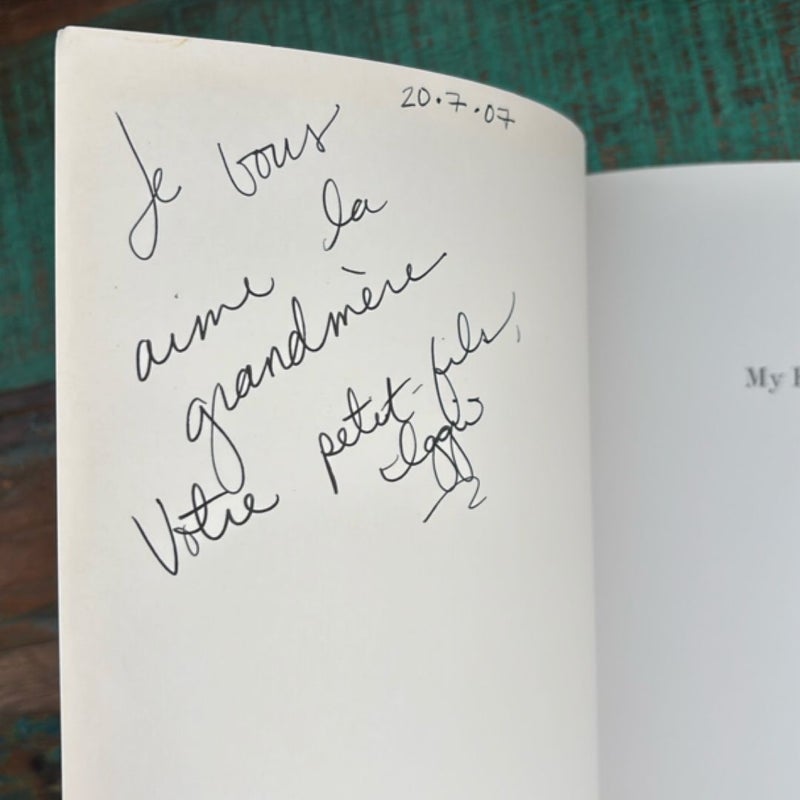 20.7.07
Je vous
aime la
grandmère
Votre petit-fils,
My